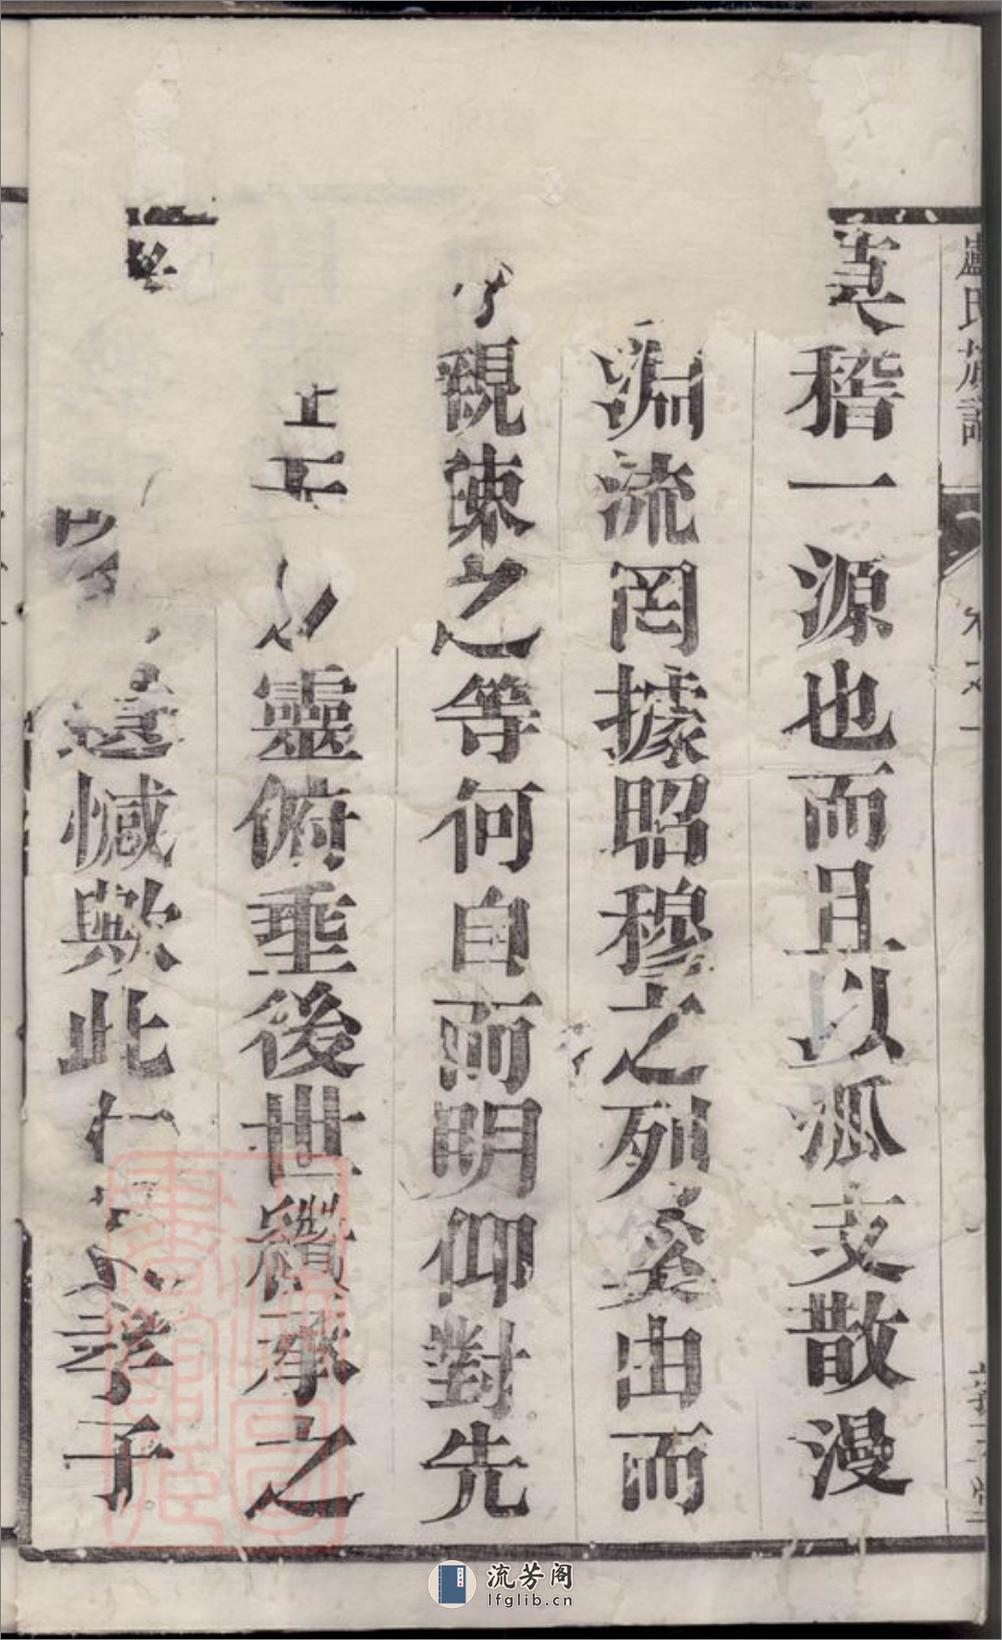 盧氏族譜
稽一源也而且以派支散漫
淵流罔據昭穆之列奚由而
親疎之等何自而明仰對先
靈俯垂後世纘承之
遺憾歟此仁孝子
流芳阁
lfglib.cn